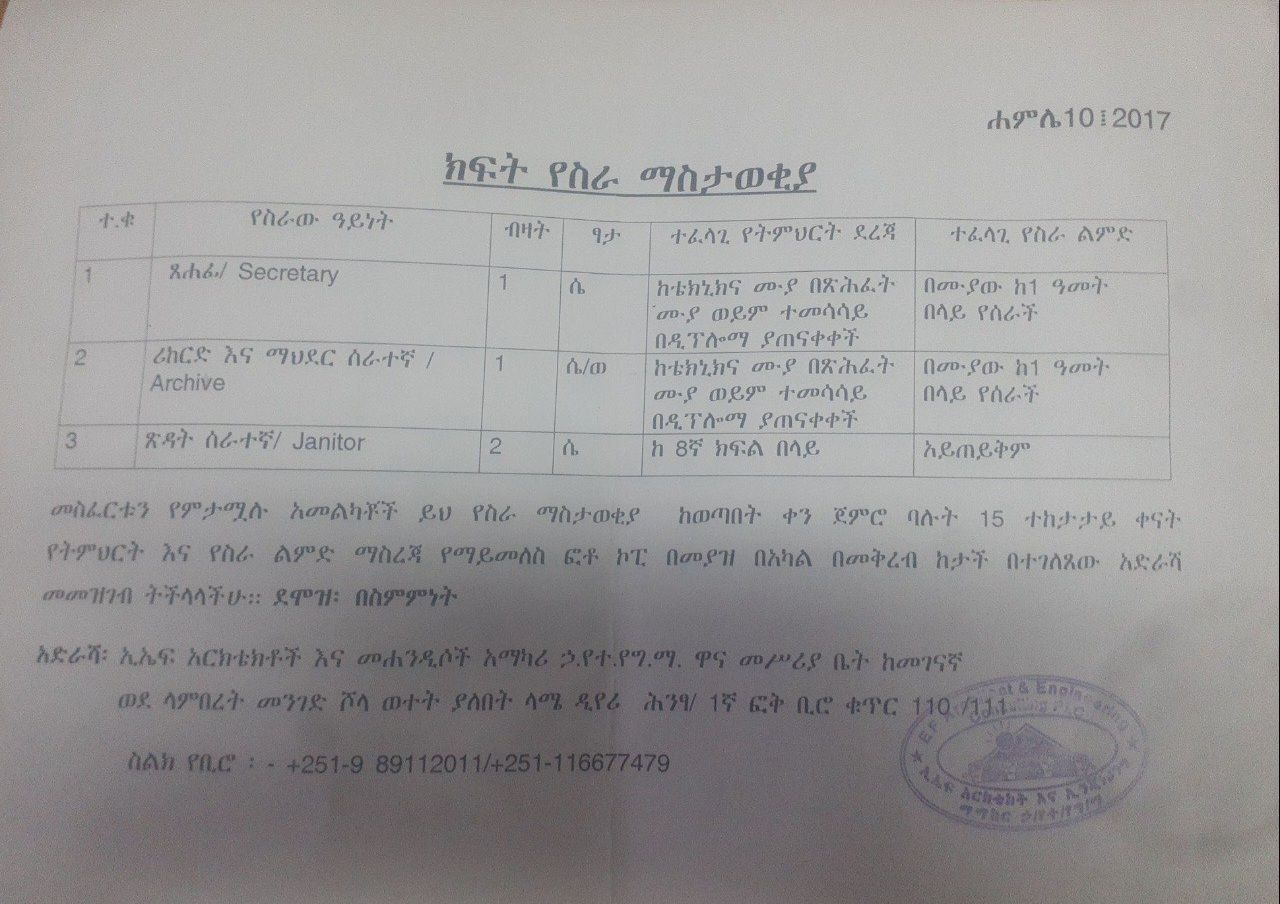 ሐምሌ10፤2017
ክፍት የስራ ማስታወቂያ
ተ.ቁ የስራው ዓይነት ብዛት ፃታ ተፈላጊ የትምህርት ደረጃ ተፈላጊ የስራ ልምድ
1 ጸሐፊ/ Secretary 1 ሴ ከቴክኒክና ሙያ በጽሕፈት በሙያው ከ1 ዓመት
ሙያ ወይም ተመሳሳይ በላይ የሰራች
በዲፕሎማ ያጠናቀቀች
2 ሪከርድ እና ማህደር ሰራተኛ / 1 ሴ/ወ ከቴክኒክና ሙያ በጽሕፈት በሙያው ከ1 ዓመት
Archive ሙያ ወይም ተመሳሳይ በላይ የሰራች
በዲፕሎማ ያጠናቀቀች
3 ጽዳት ሰራተኛ/ Janitor 2 ሴ ከ 8ኛ ክፍል በላይ አይጠይቅም
መስፈርቱን የምታሟሉ አመልካቾች ይህ የስራ ማስታወቂያ ከወጣበት ቀን ጀምሮ ባሉት 15 ተከታታይ ቀናት
የትምህርት እና የስራ ልምድ ማስረጃ የማይመለስ ፎቶ ኮፒ በመያዝ በአካል በመቅረብ ከታች በተገለጸው አድራሻ
መመዝገብ ትችላላችሁ፡፡ ደሞዝ፡ በስምምነት
አድራሻ፡ ኢኤፍ አርክቴክቶች እና መሐንዲሶች አማካሪ ኃ.የተ.የግ.ማ. ዋና መሥሪያ ቤት ከመገናኛ
ወደ ላምበረት መንገድ ሾላ ወተት ያለበት ላሜ ዲየሪ ሕንፃ/ 1ኛ ፎቅ ቢሮ ቁጥር 110 /111
ስልክ የቢሮ ፡ - +251-9 89112011/+251-116677479
EF & Engineering
Consulting PLC
ኢኤፍ አርክቴክት እና